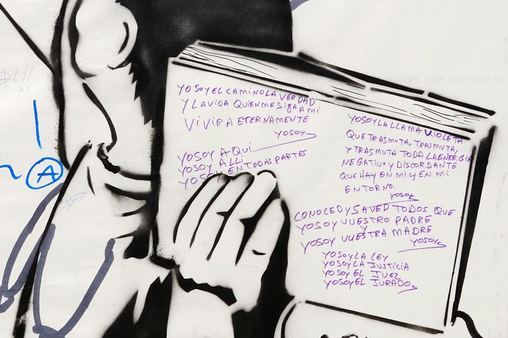 YO SOY EL CAMINO LA VERDAD
Y LA VIDA QUIEN ME SIGA A MI
VIVIRA ETERNAMENTE
YO SOY
YO SOY AQUI
YO SOY ALLI
YO SOY EN TODA PARTES
YO SOY LA LLAMA VIOLETA
QUE TRASMUTA, TRASMUTA,
Y TRASMUTA TODA LA ENERGIA
NEGATIVA Y DISCORDANTE
QUE HAY EN MI Y EN MI
ENTORNO.
YO SOY
CONOCED Y SAVED TODOS QUE
YO SOY VUESTRO PADRE
YO SOY VUESTRA MADRE
YO SOY
YO SOY LA LEY
YO SOY LA JUSTICIA
YO SOY EL JUEZ
YO SOY EL JURADO
A